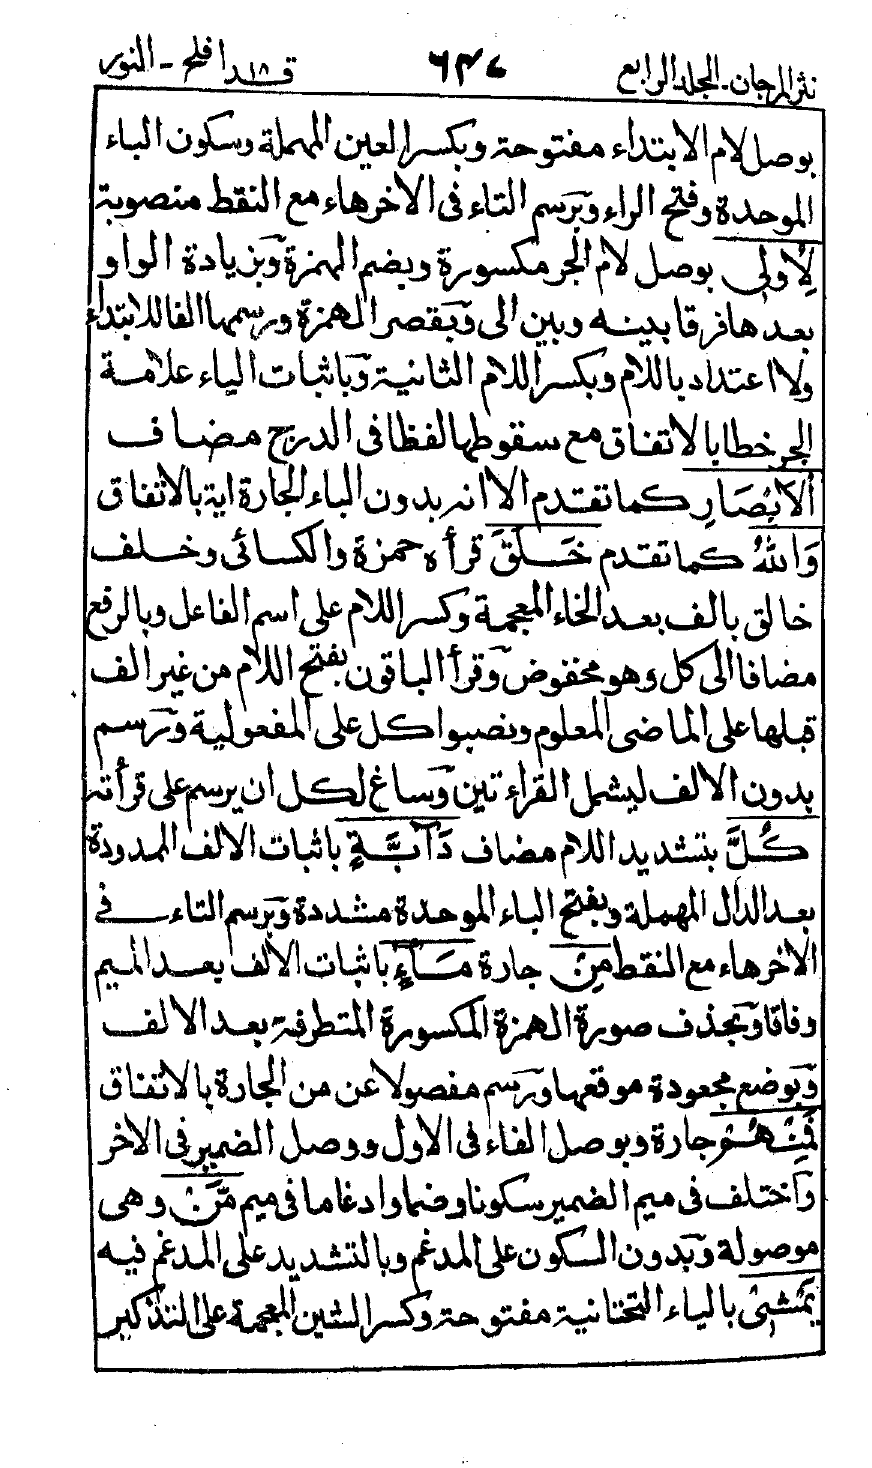 نثر المرجان - المجلد الرابع ٦٤٧ قد ١٨ افلح - النور
بوصل لام الابتداء مفتوحة وبكسر العين المهملة وسكون الباء
الموحدة وفتح الراء وبرسم التاء فى الاخر هاء مع النقط منصوبة
لِأُولِى بوصل لام الجر مكسورة وبضم الهمزة وبزيادة الواو
بعدها فرقا بينه وبين الى وبقصر الهمزة ورسمها الفا للابتداء
ولا اعتداد باللام وبكسر اللام الثانية وباثبات الياء علامة
الجر خطا بالاتفاق مع سقوطها لفظا فى الدرج مضاف
الْاَبْصَارِ كما تقدم الا انه بدون الباء الجارة اية بالاتفاق
وَاللّٰهُ كما تقدم خَلَقَ قرأه حمزة والكسائى وخلف
خالق بالف بعد الخاء المعجمة وكسر اللام على اسم الفاعل وبالرفع
مضافا الى كل وهو مخفوض وقرأ الباقون بفتح اللام من غير الف
قبلها على الماضى المعلوم ونصبوا كل على المفعولية ورسم
بدون الالف ليشمل القراءتين وساغ لكل ان يرسم على قرأته
كُلَّ بتشديد اللام مضاف دَآبَّةٍ باثبات الالف الممدودة
بعد الدال المهملة وبفتح الباء الموحدة مشددة وبرسم التاء فى
الاخر هاء مع النقط مِنْ جارة مَآءٍ باثبات الالف بعد الميم
وفاقا وبحذف صورة الهمزة المكسورة المتطرفة بعد الالف
وبوضع مجعودة موقعها ورسم مفصولا عن من الجارة بالاتفاق
فَمِنْهُمْ جارة وبوصل الفاء فى الاول ووصل الضمير فى الاخر
واختلف فى ميم الضمير سكونا وضما وادغاما فى ميم مَّنْ وهى
موصولة وبدون السكون على المدغم وبالتشديد على المدغم فيه
يَمْشِىْ بالياء التحتانية مفتوحة وكسر الشين المعجمة على التذكير